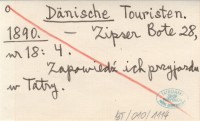 Dänische Touristen.
1890. — Zipser Bote 28,
nr 18: 4.
Zapowiedź ich przyjazdu
w Tatry.